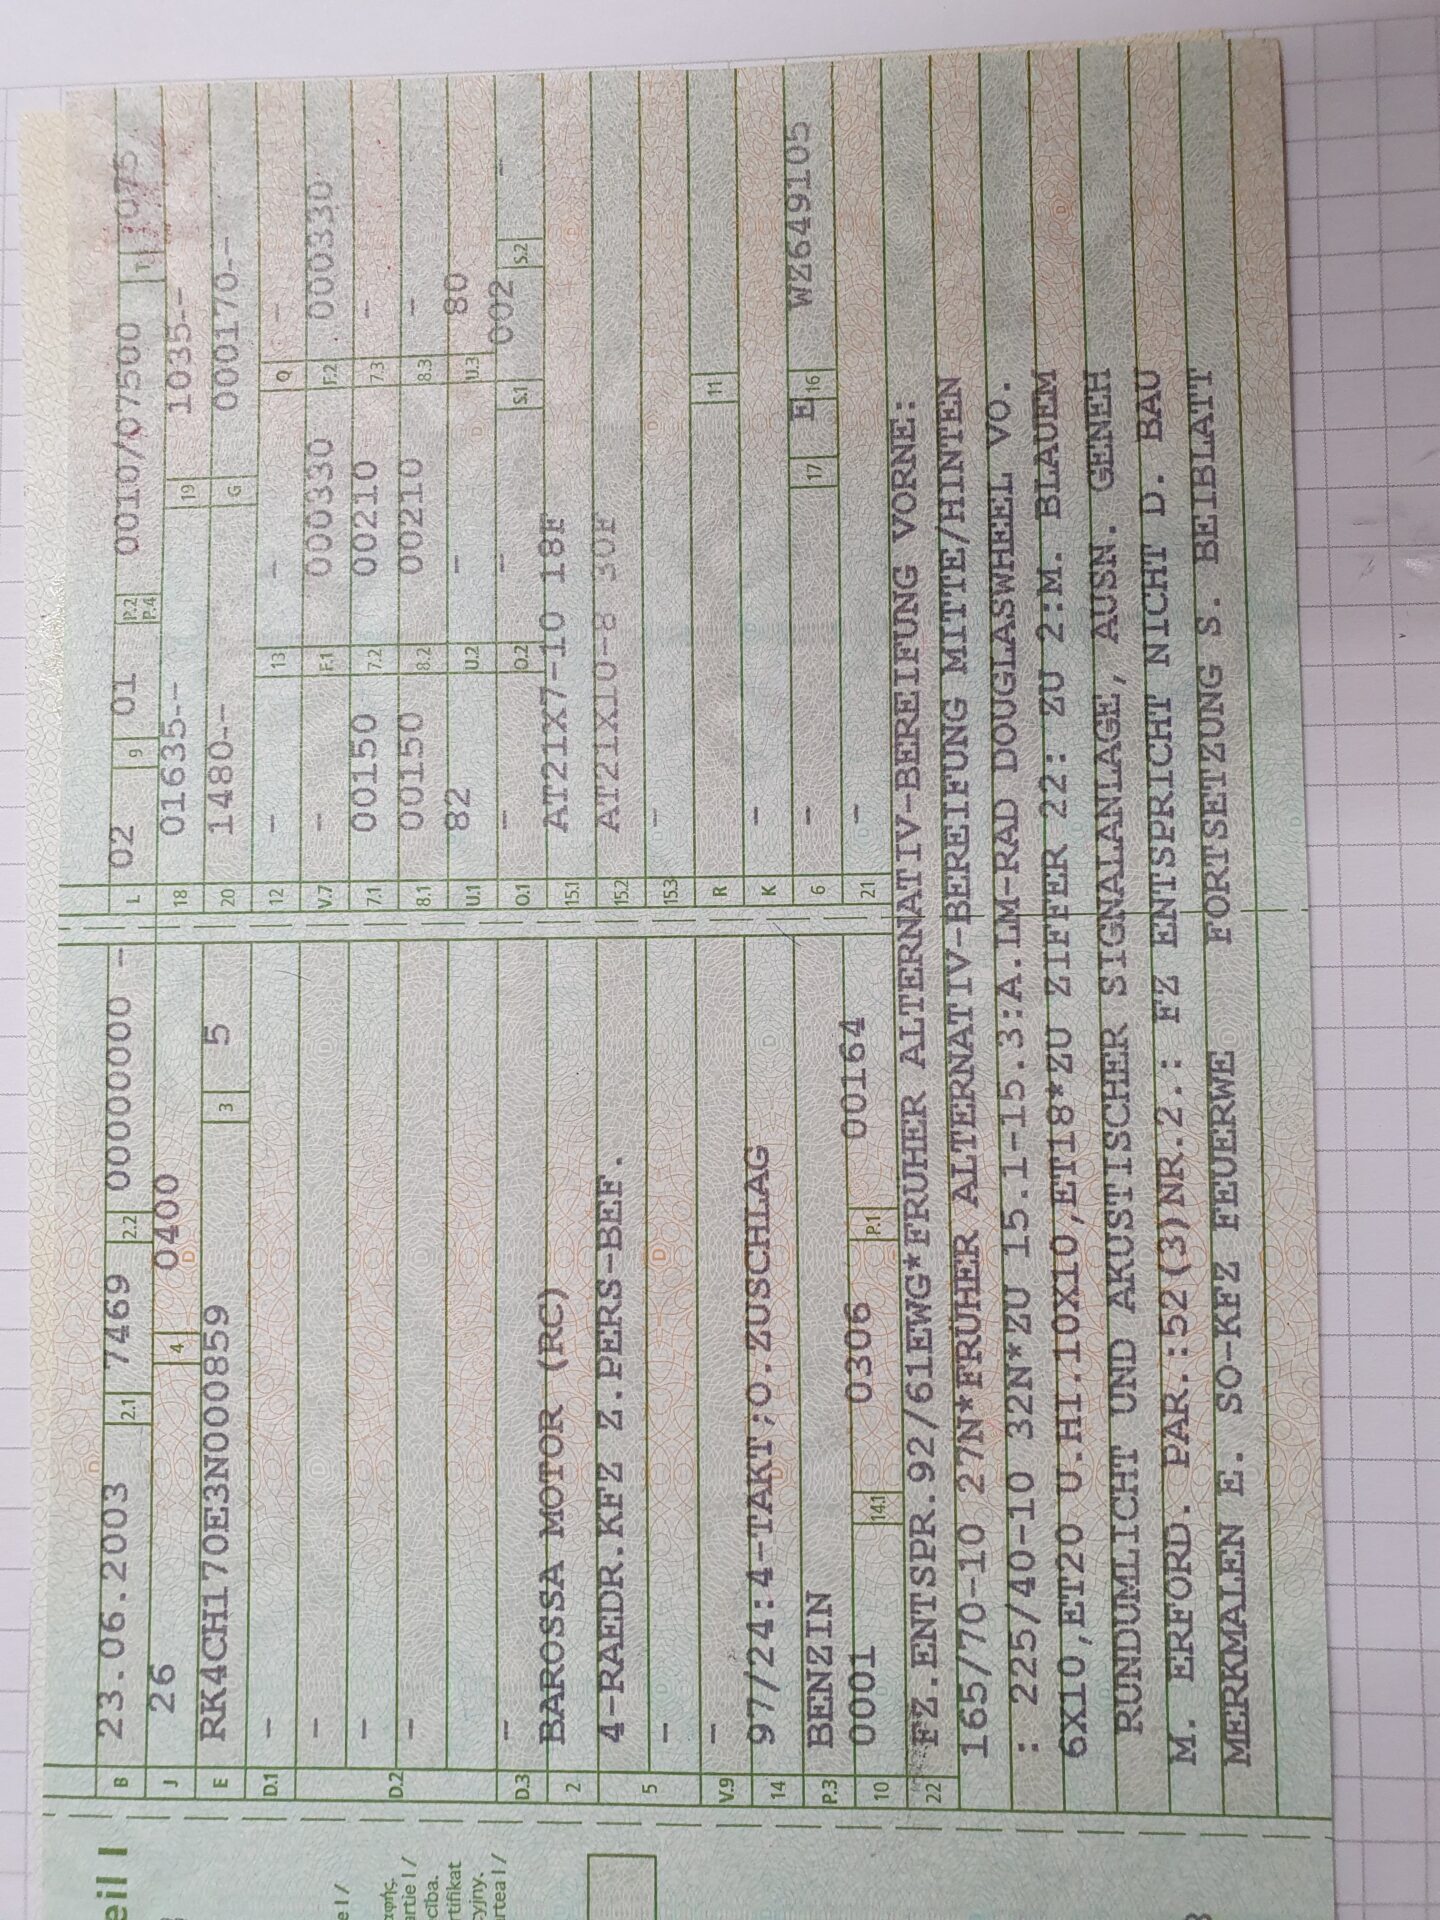 eil I
e I /
artie I /
rtifikat
artea I /
B 23.06.2003 2.1 7469 2.2 00000000 -
J 26 4 0400
E RK4CH170E3N000859 3 5
D.1 -
-
D.2 -
-
D.3 -
2 BAROSSA MOTOR (RC)
5 4-RAEDR.KFZ Z.PERS-BEF.
-
V.9 -
14 97/24:4-TAKT;O.ZUSCHLAG
P.3 BENZIN
10 0001 14.1 0306 P.1 00164
L 02 9 01 P.2 P.4 0010/07500 T
18 01635-- 19 1035--
20 1480-- G 000170--
12 - 13 - Q -
V.7 - F.1 000330 F.2 000330
7.1 00150 7.2 00210 7.3 -
8.1 00150 8.2 00210 8.3 -
U.1 82 U.2 - U.3 80
O.1 - O.2 - S.1 002 S.2 -
15.1 AT21X7-10 18F
15.2 AT21X10-8 30F
15.3 -
R 11
K -
6 - 17 E 16 WZ649105
21 -
22 FZ.ENTSPR.92/61EWG*FRUHER ALTERNATIV-BEREIFUNG VORNE:
165/70-10 27N*FRUHER ALTERNATIV-BEREIFUNG MITTE/HINTEN
: 225/40-10 32N*ZU 15.1-15.3:A.LM-RAD DOUGLASWHEEL VO.
6X10,ET20 U.HI.10X10,ET18*ZU ZIFFER 22: ZU 2:M. BLAUEM
RUNDUMLICHT UND AKUSTISCHER SIGNALANLAGE, AUSN. GENEH
M. ERFORD. PAR.:52(3)NR.2.: FZ ENTSPRICHT NICHT D. BAU
MERKMALEN E. SO-KFZ FEUERWE FORTSETZUNG S. BEIBLATT